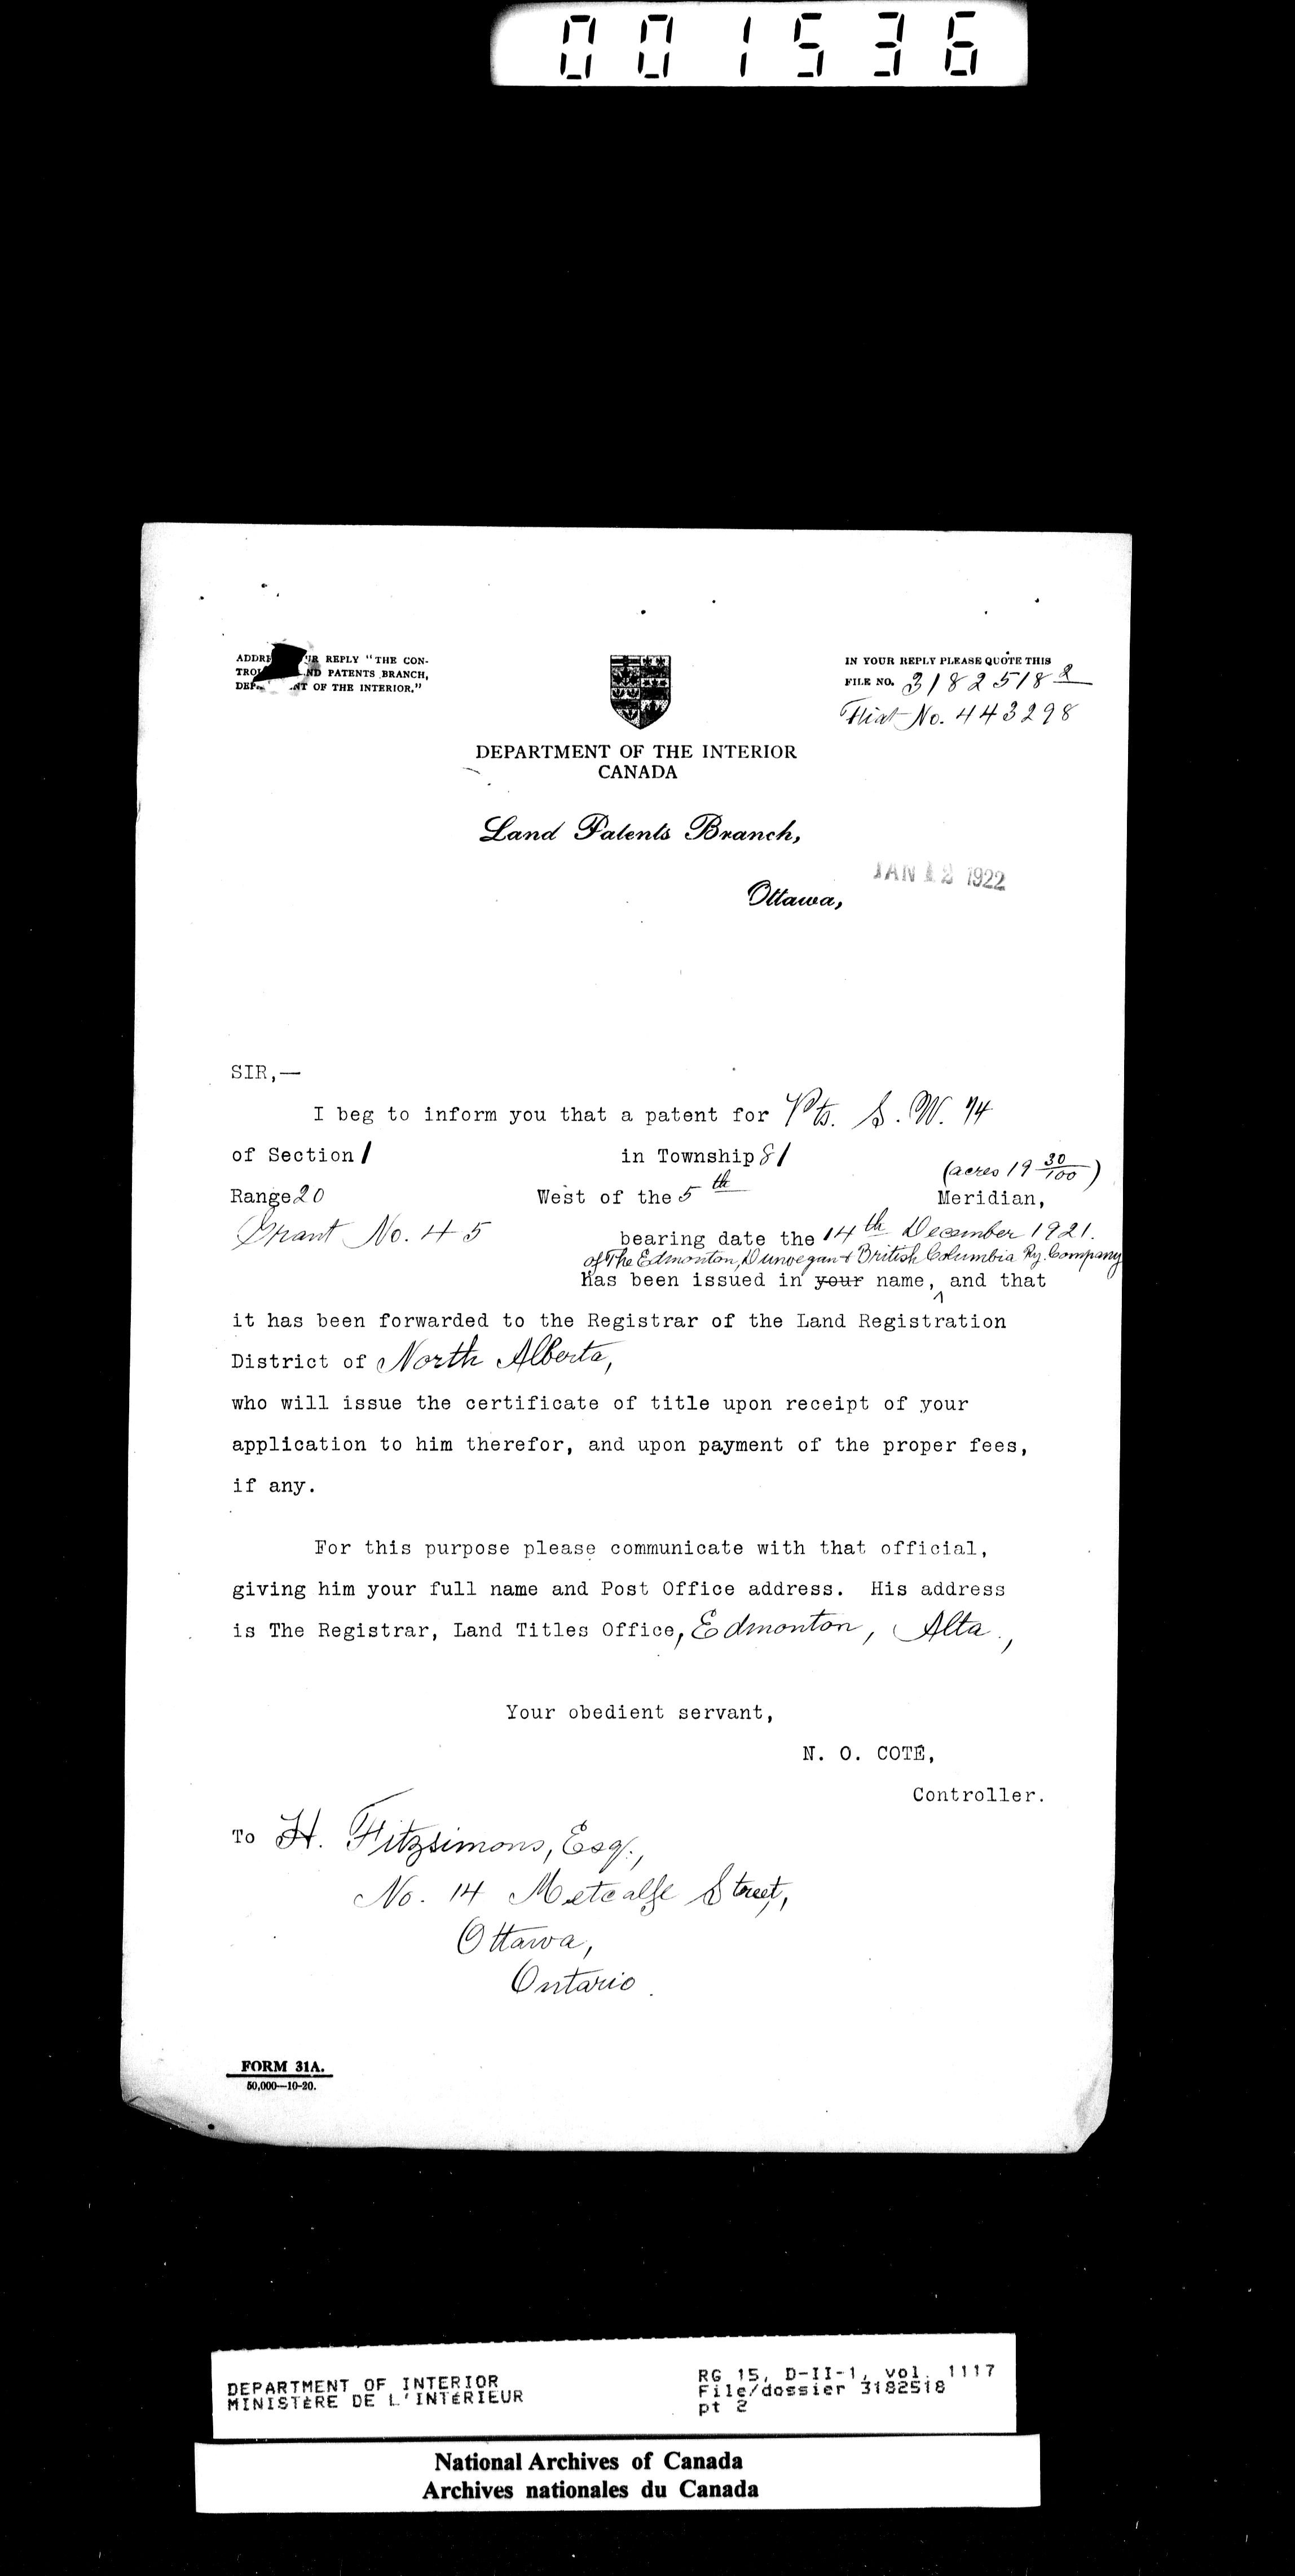 001536
ADDRE UR REPLY "THE CON-
TRO ND PATENTS BRANCH,
DEP NT OF THE INTERIOR."
IN YOUR REPLY PLEASE QUOTE THIS
FILE NO. 3182518 2
Fiat No. 443298
DEPARTMENT OF THE INTERIOR
CANADA
Land Patents Branch,
JAN 12 1922
Ottawa,
SIR,—
I beg to inform you that a patent for Pts. S.W. 1/4
of Section 1 in Township 81
(acres 19 30/100)
Range 20 West of the 5th Meridian,
Grant No. 45 bearing date the 14th December 1921.
of The Edmonton, Dunvegan & British Columbia Ry. Company
has been issued in your name, and that
it has been forwarded to the Registrar of the Land Registration
District of North Alberta,
who will issue the certificate of title upon receipt of your
application to him therefor, and upon payment of the proper fees,
if any.
For this purpose please communicate with that official,
giving him your full name and Post Office address. His address
is The Registrar, Land Titles Office, Edmonton, Alta.,
Your obedient servant,
N. O. COTÉ,
Controller.
To H. Fitzsimons, Esq.,
No. 14 Metcalfe Street,
Ottawa,
Ontario.
FORM 31A.
50,000—10-20.
DEPARTMENT OF INTERIOR
MINISTÈRE DE L'INTÉRIEUR
RG 15, D-II-1, vol. 1117
File/dossier 3182518
pt 2
National Archives of Canada
Archives nationales du Canada